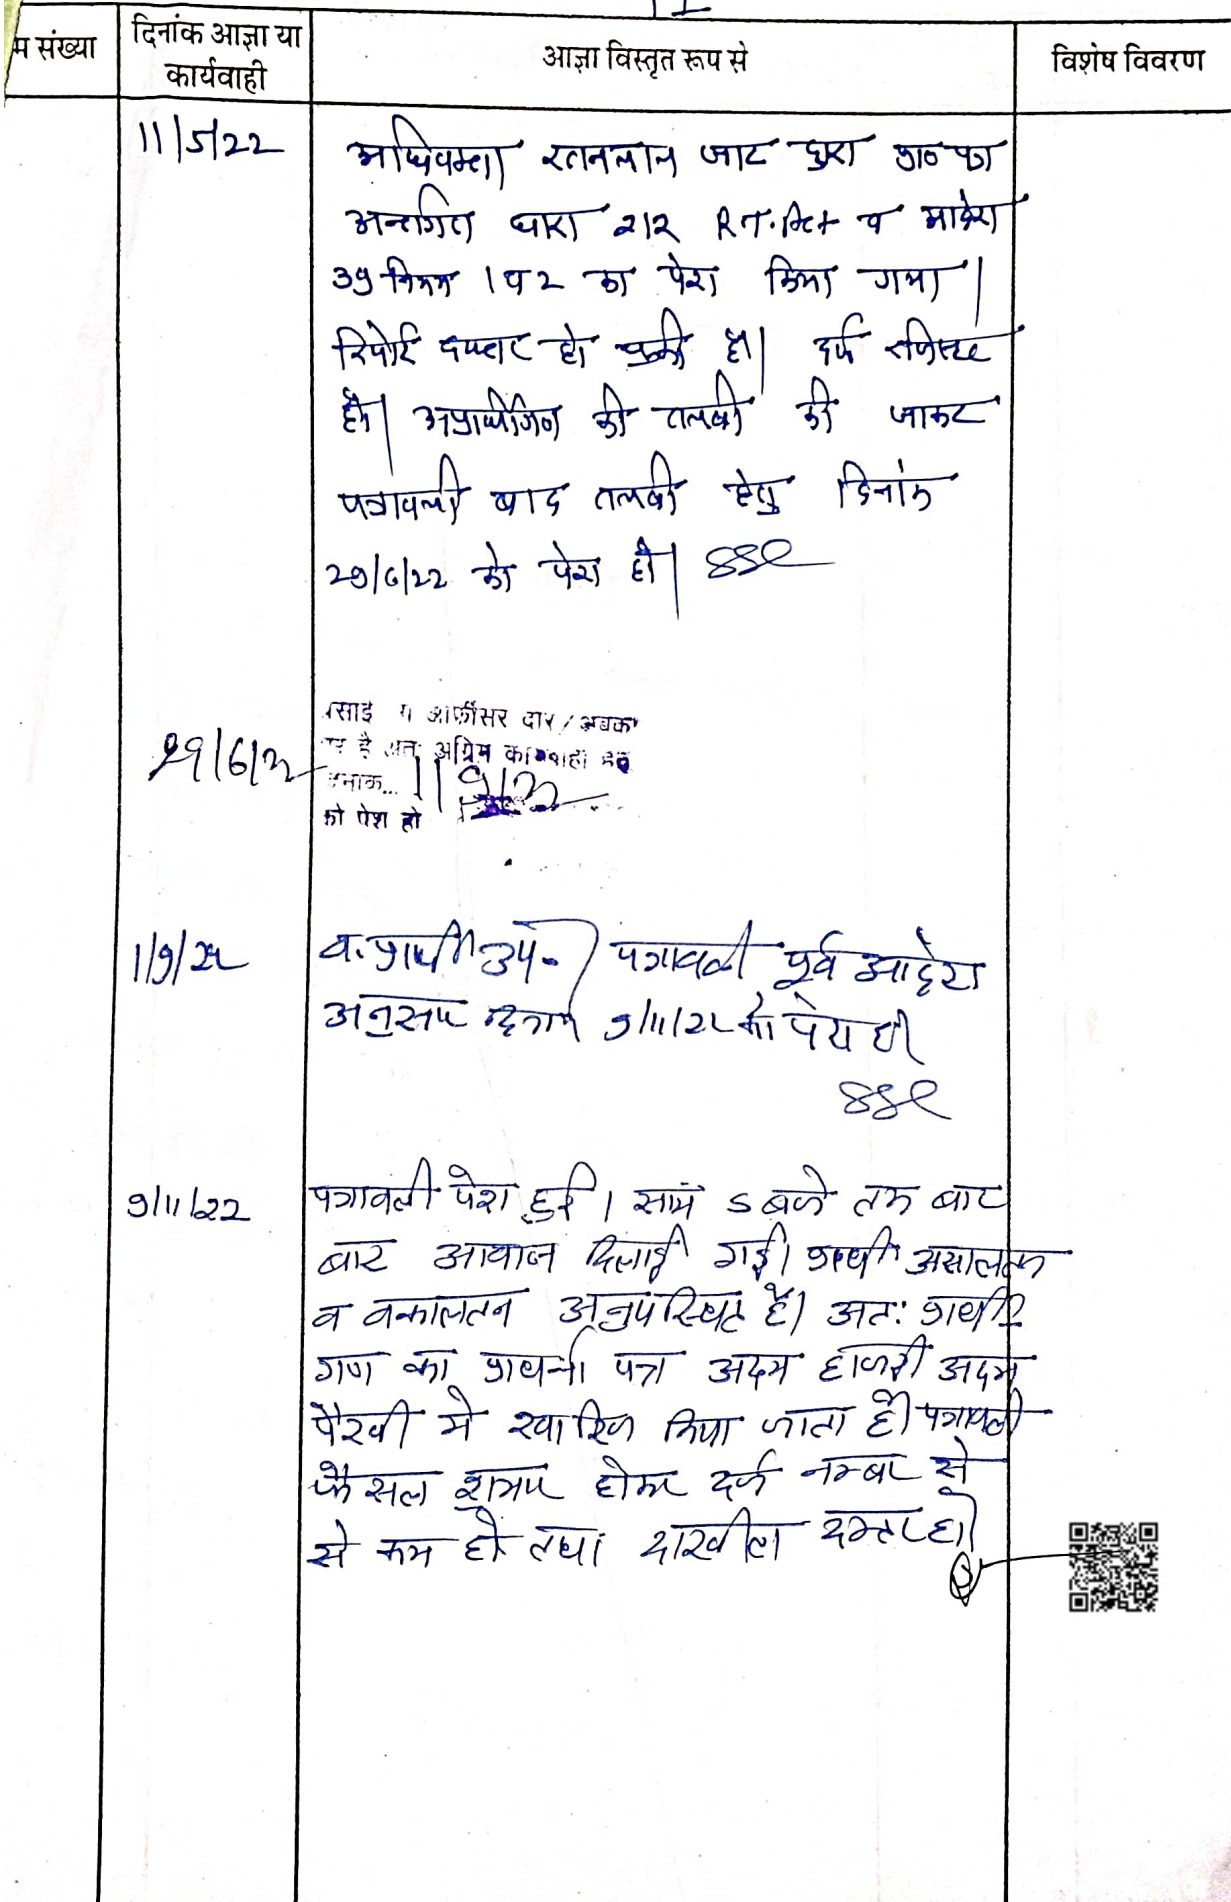 म संख्या
दिनांक आज्ञा या
कार्यवाही
आज्ञा विस्तृत रूप से
विशेष विवरण
11/5/22
अधिवक्ता रतनलाल जाट द्वारा प्रा० पत्र
अन्तर्गत धारा 212 R.T. Act व आदेश
39 नियम 1 व 2 का पेश किया गया।
रिपोर्ट दफ्तर हो चुकी है। दर्ज रजिस्टर
हो। अप्रार्थीगण की तलबी की जाकर
पत्रावली बाद तलबी हेतु दिनांक
29/6/22 को पेश हो।
29/6/22
आफीसर
है अत: अग्रिम
1/9/22
को पेश हो
1/9/22
व. प्रार्थी उप०। पत्रावली पूर्व आदेश
अनुसार 9/11/22 को पेश हो
9/11/22
पत्रावली पेश हुई। सायं 5 बजे तक बार
बार आवाज दिलाई गई। प्रार्थी असालतन
व वकालतन अनुपस्थित है। अत: प्रार्थी
गण का प्रार्थना पत्र अदम हाजरी अदम
पैरवी में खारिज किया जाता है। पत्रावली
फैसल शुमार होकर दर्ज नम्बर से
से कम हो तथा दाखील दफ्तर हो।